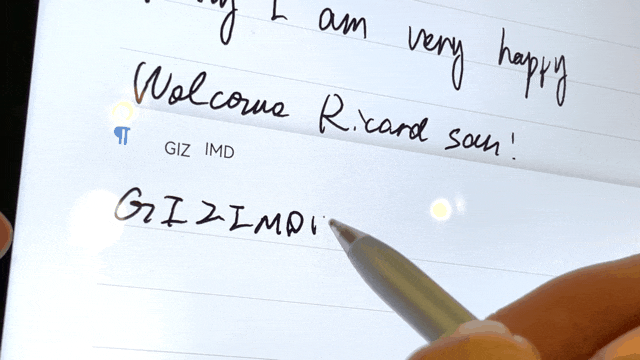 I am very happy
Welcome Ricard san!
GIZ IMD
GIZIMDI